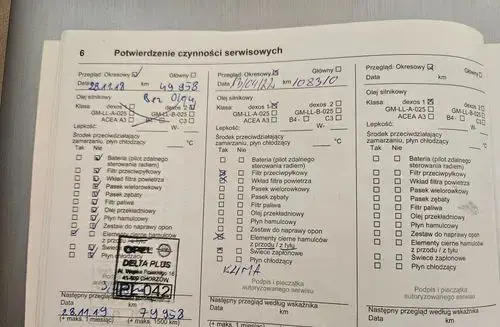 6 Potwierdzenie czynności serwisowych
Przegląd: Okresowy Główny
Data 28.11.19 km 49 958
Olej silnikowy
Klasa: dexos 1 dexos 2
GM-LL-A-025 GM-LL-B-025
ACEA A3 B4 - C3
Lepkość: W-
Środek przeciwdziałający
zamarzaniu, płyn chłodzący °C
Tak Nie
Bateria (pilot zdalnego
sterowania radiem)
Filtr przeciwpyłkowy
Wkład filtra powietrza
Pasek wielorowkowy
Pasek zębaty
Filtr paliwa
Olej przekładniowy
Płyn hamulcowy
Zestaw do naprawy opon
Elementy cierne hamulców
z przodu / z tyłu
Świece
Płyn
OPEL
DELTA PLUS
Al. Wojska Polskiego 16
41-500 CHORZÓW
PL 042
Następny przegląd
Data km
28.11.19 79 958
(+ maks. 1 miesiąc) (+ maks. 1500 km)
Przegląd: Okresowy Główny
Data km 108310
Olej silnikowy
Klasa: dexos 1 dexos 2
GM-LL-A-025 GM-LL-B-025
ACEA A3 B4 - C3
Lepkość: W-
Środek przeciwdziałający
zamarzaniu, płyn chłodzący °C
Tak Nie
Bateria (pilot zdalnego
sterowania radiem)
Filtr przeciwpyłkowy
Wkład filtra powietrza
Pasek wielorowkowy
Pasek zębaty
Filtr paliwa
Olej przekładniowy
Płyn hamulcowy
Zestaw do naprawy opon
Elementy cierne hamulców
z przodu / z tyłu
Świece zapłonowe
Płyn chłodzący
KLIMA
Podpis i pieczątka
autoryzowanego serwisu
Następny przegląd według wskaźnika
Data km
(+ maks. 1 miesiąc)
Przegląd: Okresowy
Data km
Olej silnikowy
Klasa: dexos 1
GM-LL-A-025
ACEA A3
Lepkość:
Środek przeciwdziałający
zamarzaniu, płyn chłodzący
Tak Nie
Bateria (pilot zdalnego
sterowania radiem)
Filtr przeciwpyłkowy
Wkład filtra powietrza
Pasek wielorowkowy
Pasek zębaty
Filtr paliwa
Olej przekładniowy
Płyn hamulcowy
Zestaw do naprawy opon
Elementy cierne hamulców
z przodu / z tyłu
Świece zapłonowe
Płyn chłodzący
Podpis i pieczątka
autoryzowanego serwisu
Następny przegląd według wskaźnika
Data
(+ maks. 1 miesiąc)